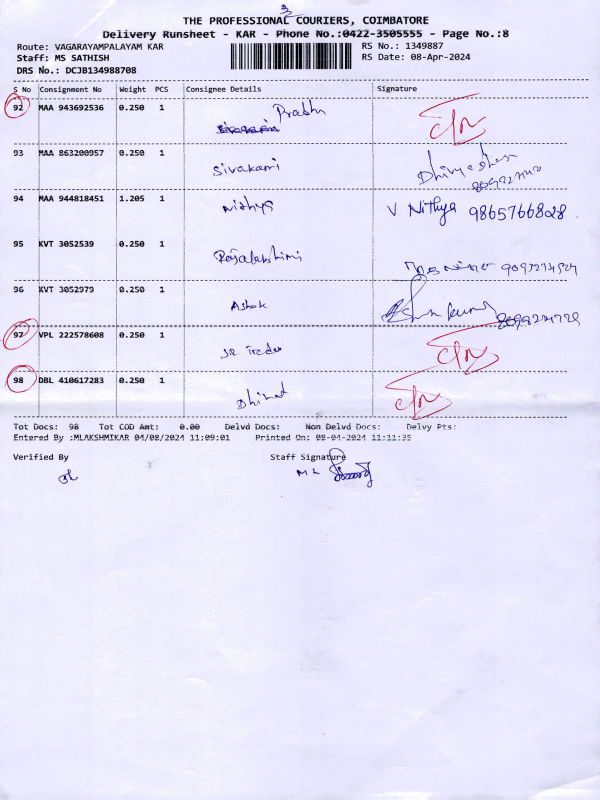 THE PROFESSIONAL COURIERS, COIMBATORE
Delivery Runsheet - KAR - Phone No.:0422-3505555 - Page No.:8
Route: VAGARAYAMPALAYAM KAR RS No.: 1349887
Staff: MS SATHISH RS Date: 08-Apr-2024
DRS No.: DCJB134988708
S No Consignment No Weight PCS Consignee Details Signature
92 MAA 943692536 0.250 1 Prabhu
93 MAA 863200957 0.250 1 Sivakami
94 MAA 944818451 1.205 1 Nithya V Nithya 9865766828
95 KVT 3052539 0.250 1 Rajalakshimi
96 KVT 3052979 0.250 1 Ashok
97 VPL 222578608 0.250 1
98 DBL 410617283 0.250 1
Tot Docs: 98 Tot COD Amt: 0.00 Delvd Docs: Non Delvd Docs: Delvy Pts:
Entered By :MLAKSHMIKAR 04/08/2024 11:09:01 Printed On: 08-04-2024 11:11:35
Verified By Staff Signature